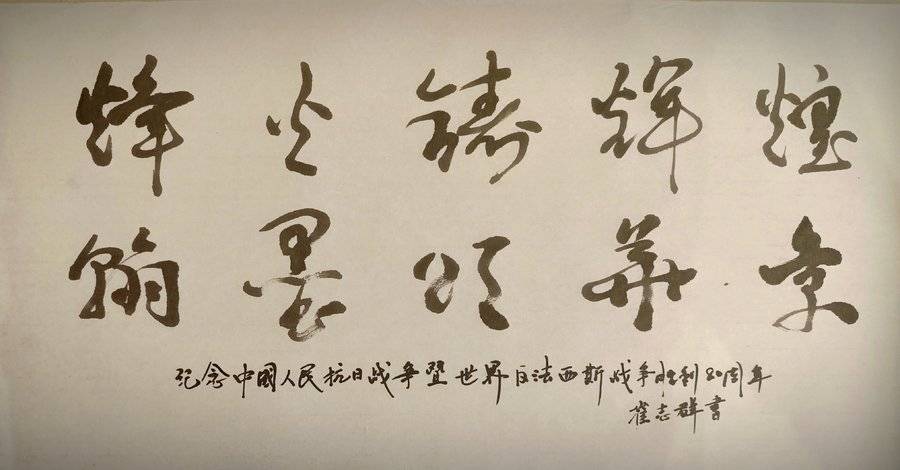 烽火鑄輝煌
翰墨頌華章
纪念中國人民抗日战争暨世界反法西斯战争胜利80周年
崔志群書